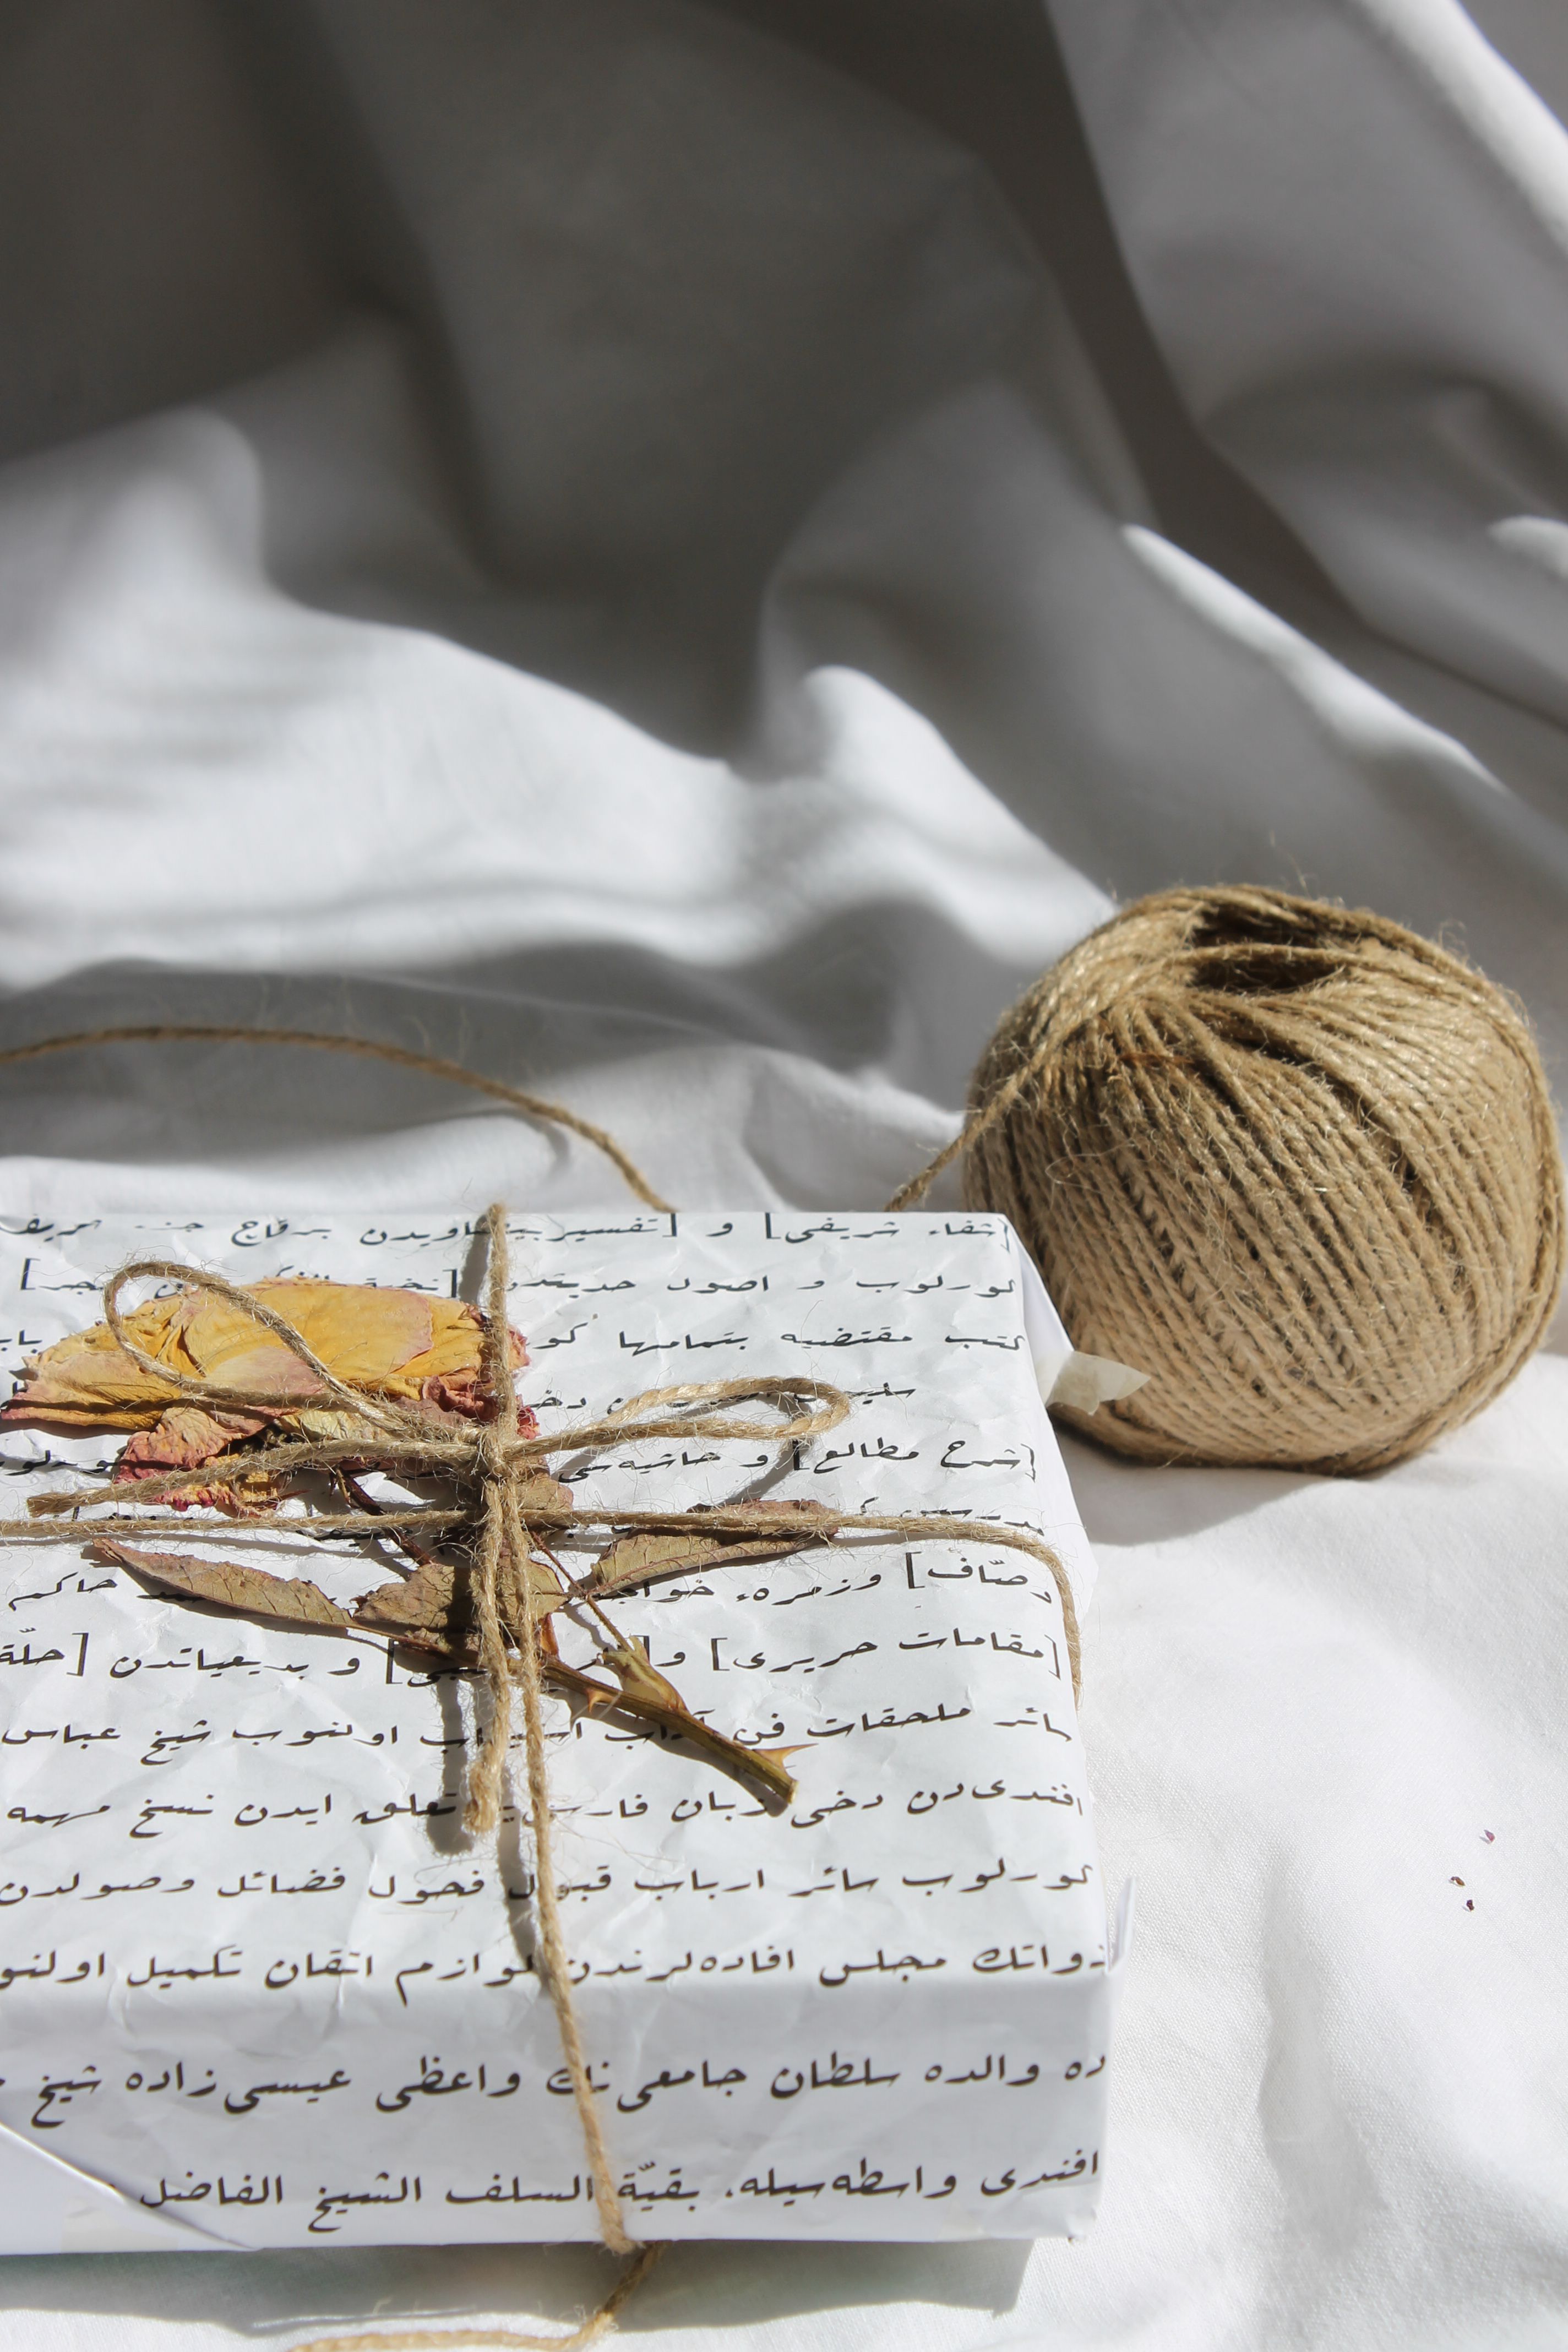 [شفاء شريفى] و [تفسير بيضاويدن برقاچ جزء
كورلوب و اصول حديثدن
كتب مقتضيه بتمامها
دخى
[شرح مطالع] و حاشيه‌سى
وصّاف] وزمره‌ء حاكم
[مقامات حريرى] و و بديعياتدن [حلّة
سائر ملحقات فن آداب اولنوب شيخ عباس
افندى‌دن دخى زبان تعلق ايدن نسخ مهمه
كورلوب سائر ارباب قبول فحول فضائل وصولدن
ذواتك مجلس افاده‌لرندن لوازم اتقان تكميل
ده والده سلطان جامعى‌نك واعظى عيسى‌زاده شيخ
افندى واسطه‌سيله. بقيّة السلف الشيخ الفاضل